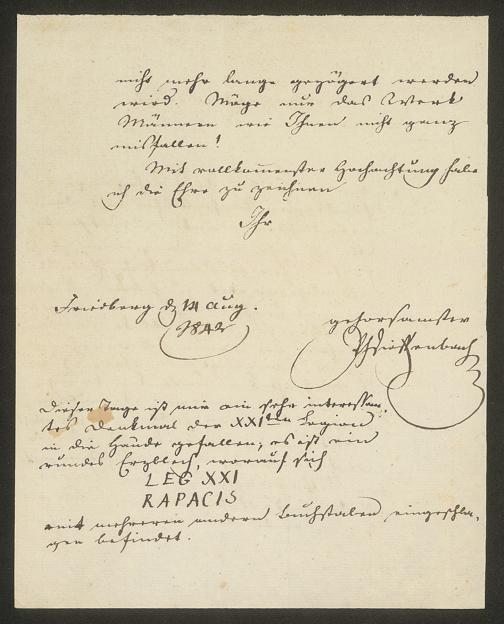 nicht mehr lange gezögert werden
wird. Möge nur das Werk
Männern wie Ihnen nicht ganz
misfallen!
Mit vollkom̅enster Hochachtung habe
ich die Ehre zu zeichnen
Ihr
Friedberg d. 14 Aug.
1842
gehorsamster
PhDieffenbach
Dieser Tage ist mir ein sehr interessan-
tes Denkmal der XXIten Legion
in die Hände gefallen; es ist ein
rundes Erzblech, worauf sich
LEG XXI
RAPACIS
mit mehreren andern Buchstaben eingeschla-
gen befindet.